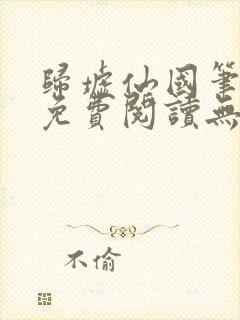 歸墟仙國筆
免費閱讀無
不偷